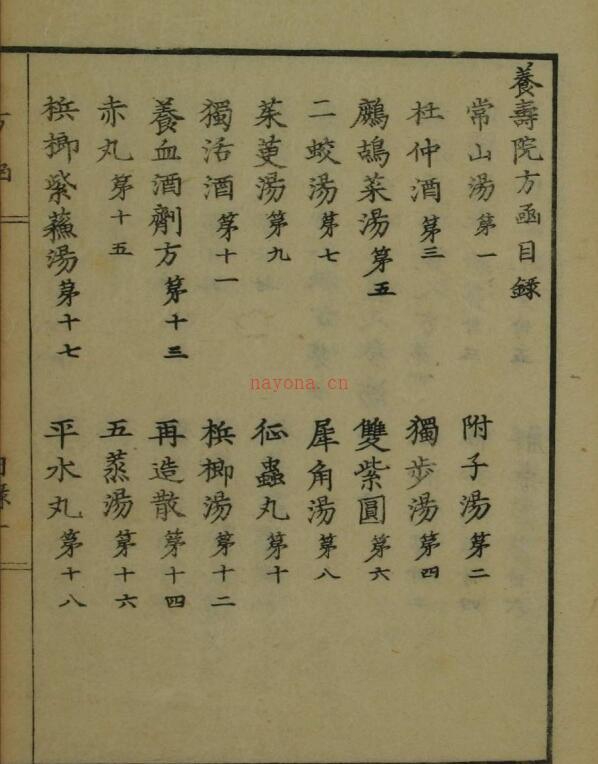 養壽院方函目錄
常山湯第一
附子湯第二
杜仲酒第三
獨步湯第四
鷓鴣菜湯第五
雙紫圓第六
二蛟湯第七
犀角湯第八
茱萸湯第九
征蟲丸第十
獨活酒第十一
梹榔湯第十二
養血酒劑方第十三
再造散第十四
赤丸第十五
五蒸湯第十六
梹榔紫蘓湯第十七
平水丸第十八
方函
nayona.cn